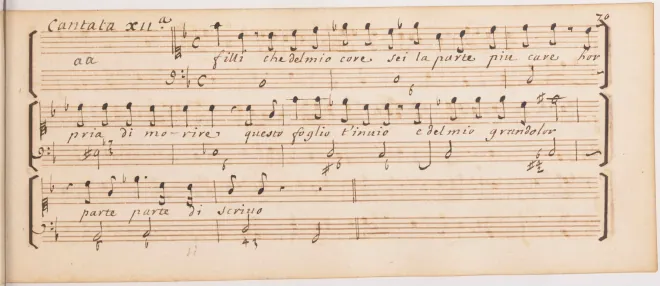 Cantata XII.a
70
aa filli che del mio core sei la parte piu care hor
pria di mo-rire questo foglio t'inuio e del mio gran dolor
parte parte di scriuo